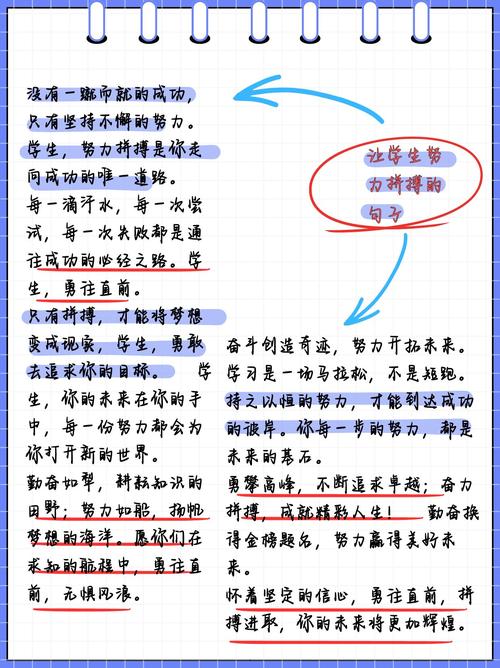 让学生努
力拼搏的
句子
没有一蹴而就的成功，
只有坚持不懈的努力。
学生，努力拼搏是你走
向成功的唯一道路。
每一滴汗水，每一次尝
试，每一次失败都是通
往成功的必经之路。学
生，勇往直前。
只有拼搏，才能将梦想
变成现实，学生，勇敢
去追求你的目标。 学
生，你的未来在你的手
中，每一份努力都会为
你打开新的世界。
勤奋如犁，耕耘知识的
田野；努力如船，扬帆
梦想的海洋。愿你们在
求知的航程中，勇往直
前，无惧风浪。
奋斗创造奇迹，努力开拓未来。
学习是一场马拉松，不是短跑。
持之以恒的努力，才能到达成功
的彼岸。你每一步的努力，都是
未来的基石。
勇攀高峰，不断追求卓越；奋力
拼搏，成就精彩人生！ 勤奋换
得金榜题名，努力赢得美好未
来。
怀着坚定的信心，勇往直前，拼
搏进取，你的未来将更加辉煌。